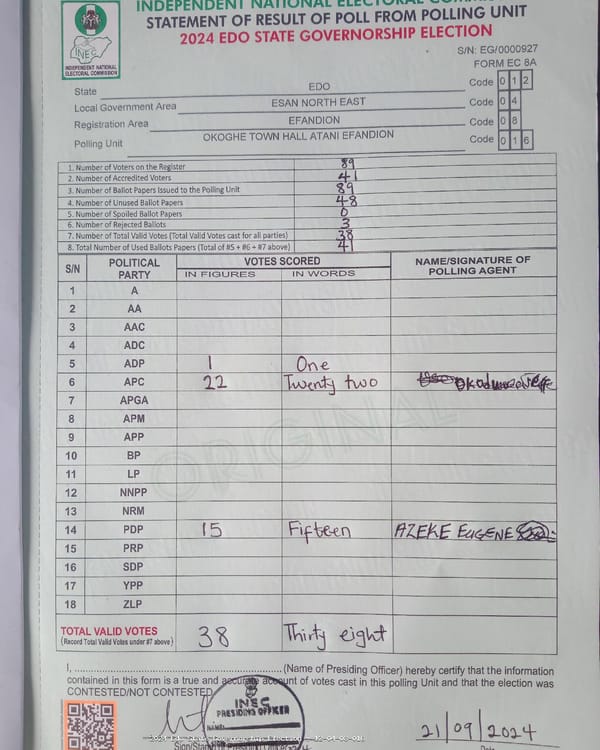 INDEPENDENT NATIONAL ELECTORAL COMM
STATEMENT OF RESULT OF POLL FROM POLLING UNIT
2024 EDO STATE GOVERNORSHIP ELECTION
INEC
INDEPENDENT NATIONAL
ELECTORAL COMMISSION
S/N: EG/0000927
FORM EC 8A
State EDO Code 0 1 2
Local Government Area ESAN NORTH EAST Code 0 4
Registration Area EFANDION Code 0 8
Polling Unit OKOGHE TOWN HALL ATANI EFANDION Code 0 1 6
1. Number of Voters on the Register 89
2. Number of Accredited Voters 41
3. Number of Ballot Papers Issued to the Polling Unit 89
4. Number of Unused Ballot Papers 48
5. Number of Spoiled Ballot Papers 0
6. Number of Rejected Ballots 3
7. Number of Total Valid Votes (Total Valid Votes cast for all parties) 38
8. Total Number of Used Ballots Papers (Total of #5 + #6 + #7 above) 41
S/N POLITICAL PARTY VOTES SCORED NAME/SIGNATURE OF POLLING AGENT
IN FIGURES IN WORDS
1 A
2 AA
3 AAC
4 ADC
5 ADP 1 One
6 APC 22 Twenty two
7 APGA
8 APM
9 APP
10 BP
11 LP
12 NNPP
13 NRM
14 PDP 15 Fifteen AZEKE EUGENE
15 PRP
16 SDP
17 YPP
18 ZLP
ORIGINAL
TOTAL VALID VOTES 38 Thirty eight
(Record Total Valid Votes under #7 above)
I, (Name of Presiding Officer) hereby certify that the information
contained in this form is a true and accurate account of votes cast in this polling Unit and that the election was
CONTESTED/NOT CONTESTED
INEC
PRESIDING OFFICER
NAME:
21/09/2024
Sign/Stamp